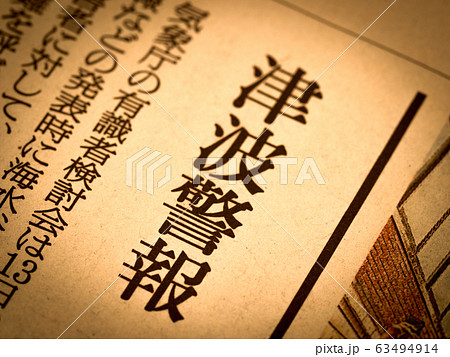 津波警報
気象庁の有識者検討会は13日
などの発表時に海水
者に対して、
PIXTA
pixta.jp - 63494914